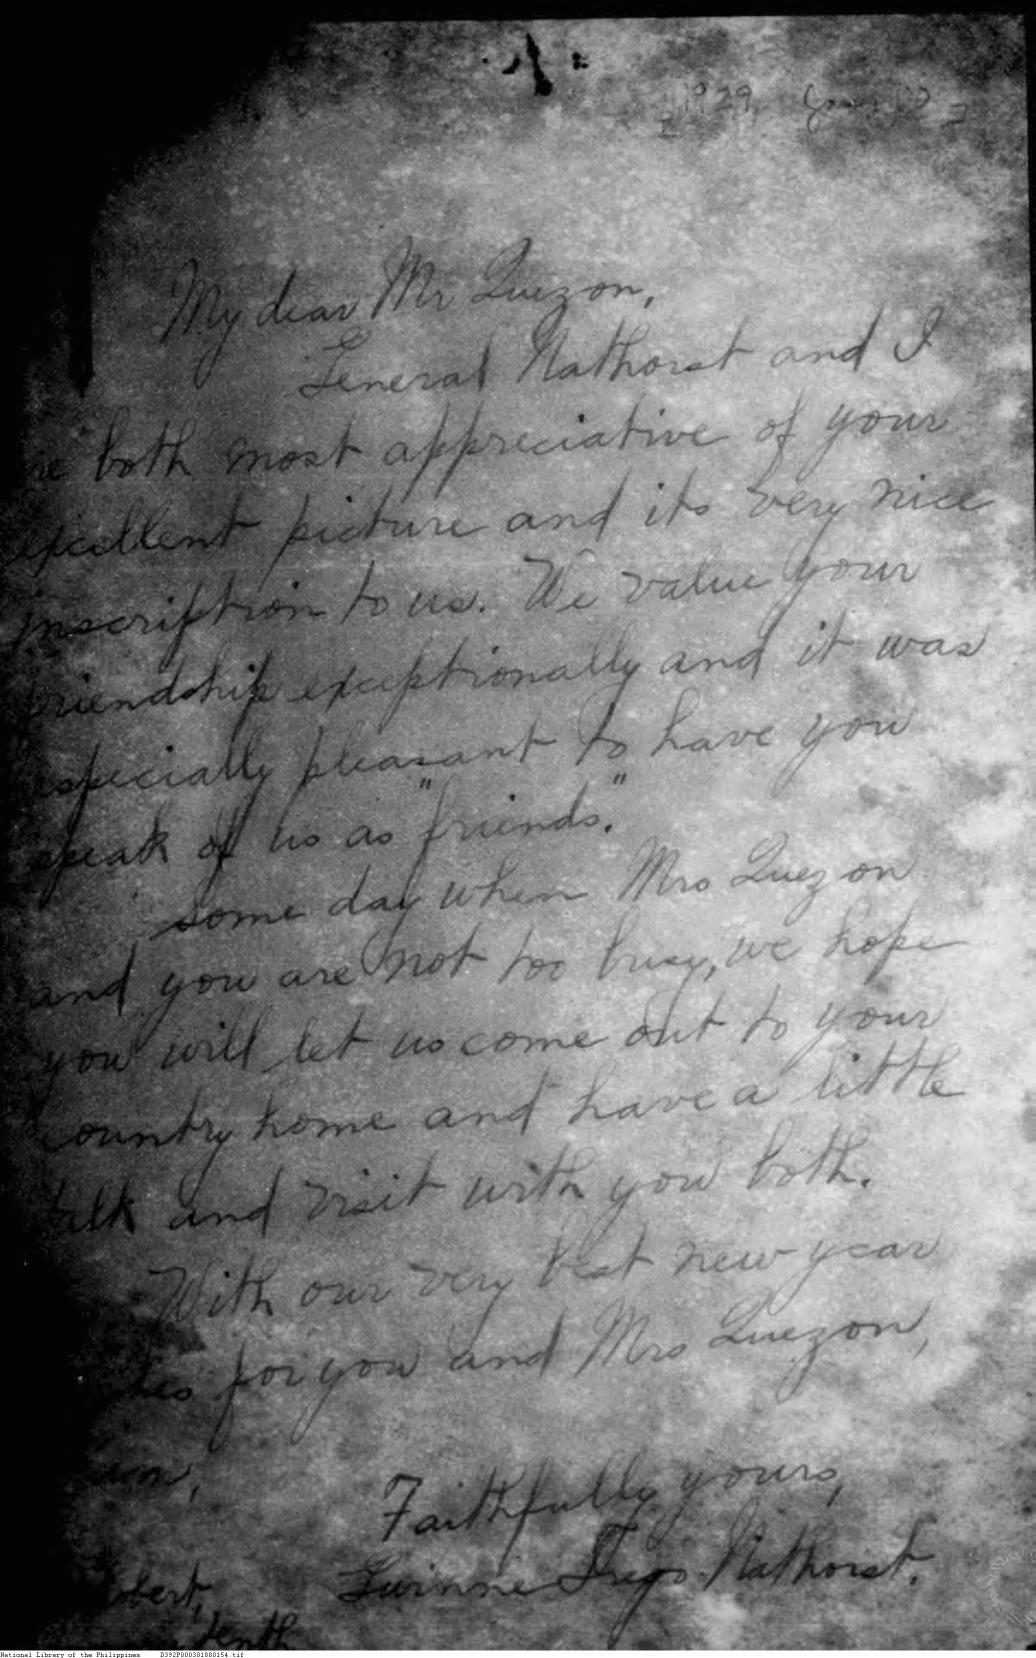 1929
My dear Mr Quezon,
General Nathorst and I
both most appreciative of your
excellent picture and its very nice
inscription to us. We value your
friendship exceptionally and it was
especially pleasant to have you
speak of us as "friends."
some day when Mrs Quezon
and you are not too busy, we hope
you will let us come out to your
country home and have a little
talk and visit with you both.
With our very best new year
for you and Mrs Quezon,
Faithfully yours,
Nathorst.
National Library of the Philippines D392P000301880154.tif